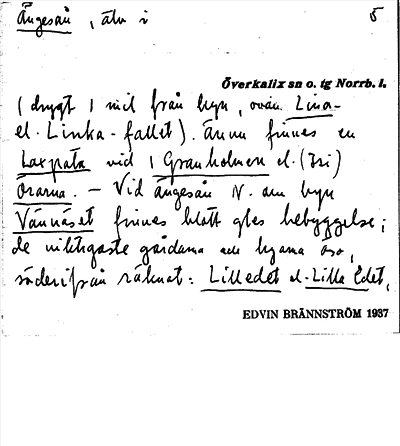 Ängesån, älv i 5
Överkalix sn o. tg Norrb. l.
(drygt 1 mil från byn, ovan Lina-
el. Linka-fallet). Ännu finnes en
Laxpata vid 1 Granholmen el. (tri)
Örarna. – Vid Ängesån N. om byn
Vännäset finnes blott gles bebyggelse;
de viktigaste gårdarna och byarna äro,
söderifrån räknat: Lilledet el. Lilla Edet,
EDVIN BRÄNNSTRÖM 1937